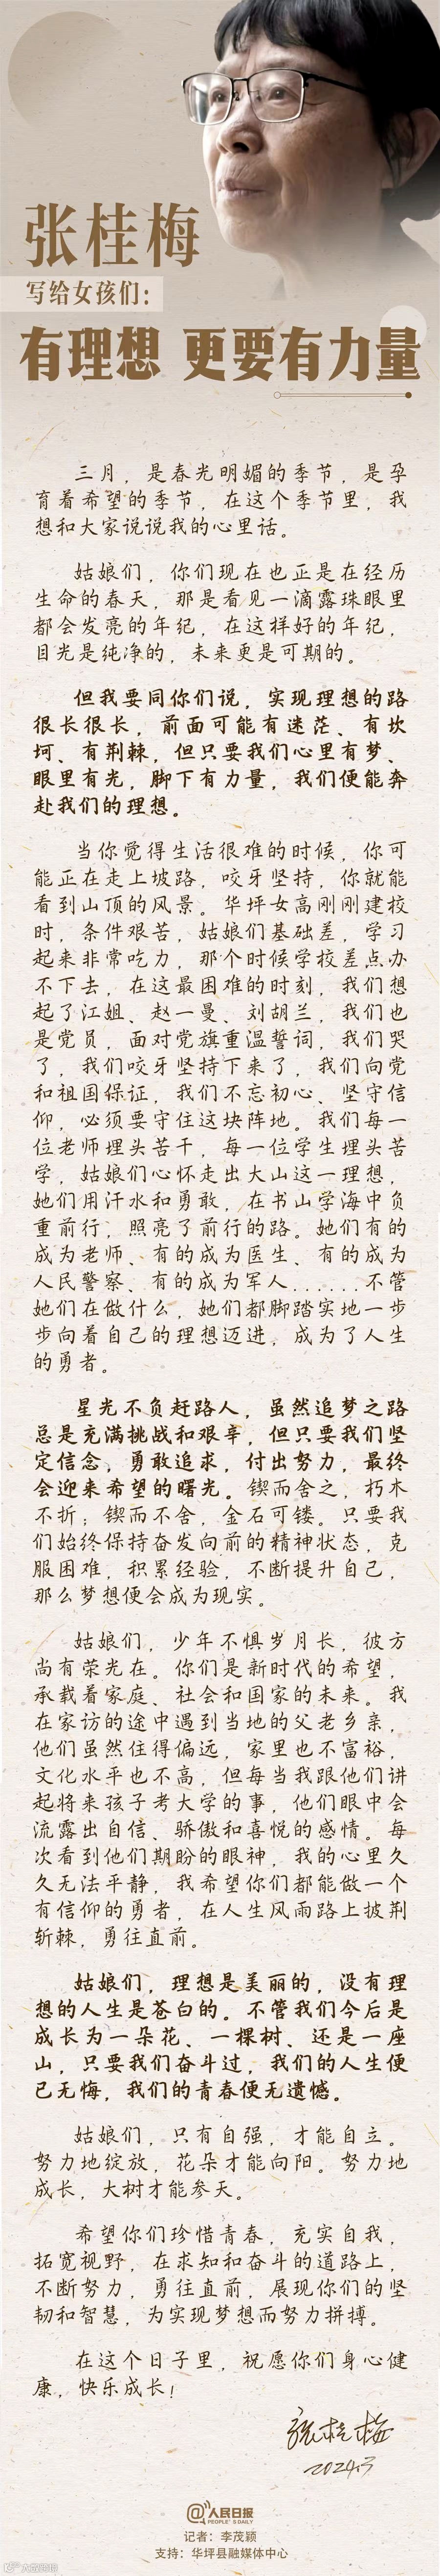 张桂梅
写给女孩们：
有理想 更要有力量
三月，是春光明媚的季节，是孕
育着希望的季节，在这个季节里，我
想和大家说说我的心里话。
姑娘们，你们现在也正是在经历
生命的春天，那是看见一滴露珠眼里
都会发亮的年纪，在这样好的年纪，
目光是纯净的，未来更是可期的。
但我要同你们说，实现理想的路
很长很长，前面可能有迷茫、有坎
坷、有荆棘，但只要我们心里有梦、
眼里有光，脚下有力量，我们便能奔
赴我们的理想。
当你觉得生活很难的时候，你可
能正在走上坡路，咬牙坚持，你就能
看到山顶的风景。华坪女高刚刚建校
时，条件艰苦，姑娘们基础差，学习
起来非常吃力，那个时候学校差点办
不下去，在这最困难的时刻，我们想
起了江姐、赵一曼、刘胡兰，我们也
是党员，面对党旗重温誓词，我们哭
了，我们咬牙坚持下来了，我们向党
和祖国保证，我们不忘初心、坚守信
仰，必须要守住这块阵地。我们每一
位老师埋头苦干，每一位学生埋头苦
学，姑娘们心怀走出大山这一理想，
她们用汗水和勇敢，在书山学海中负
重前行，照亮了前行的路。她们有的
成为老师、有的成为医生、有的成为
人民警察、有的成为军人......不管
她们在做什么，她们都脚踏实地一步
步向着自己的理想迈进，成为了人生
的勇者。
星光不负赶路人，虽然追梦之路
总是充满挑战和艰辛，但只要我们坚
定信念，勇敢追求，付出努力，最终
会迎来希望的曙光。锲而舍之，朽木
不折；锲而不舍，金石可镂。只要我
们始终保持奋发向前的精神状态，克
服困难，积累经验，不断提升自己，
那么梦想便会成为现实。
姑娘们，少年不惧岁月长，彼方
尚有荣光在。你们是新时代的希望，
承载着家庭、社会和国家的未来。我
在家访的途中遇到当地的父老乡亲，
他们虽然住得偏远，家里也不富裕，
文化水平也不高，但每当我跟他们讲
起将来孩子考大学的事，他们眼中会
流露出自信、骄傲和喜悦的感情。每
次看到他们期盼的眼神，我的心里久
久无法平静，我希望你们都能做一个
有信仰的勇者，在人生风雨路上披荆
斩棘，勇往直前。
姑娘们，理想是美丽的，没有理
想的人生是苍白的。不管我们今后是
成长为一朵花、一棵树、还是一座
山，只要我们奋斗过，我们的人生便
已无悔，我们的青春便无遗憾。
姑娘们，只有自强，才能自立。
努力地绽放，花朵才能向阳。努力地
成长，大树才能参天。
希望你们珍惜青春，充实自我，
拓宽视野，在求知和奋斗的道路上，
不断努力，勇往直前，展现你们的坚
韧和智慧，为实现梦想而努力拼搏。
在这个日子里，祝愿你们身心健
康，快乐成长！
张桂梅
2024.3
@人民日报
PEOPLE'S DAILY
记者：李茂颖
支持：华坪县融媒体中心